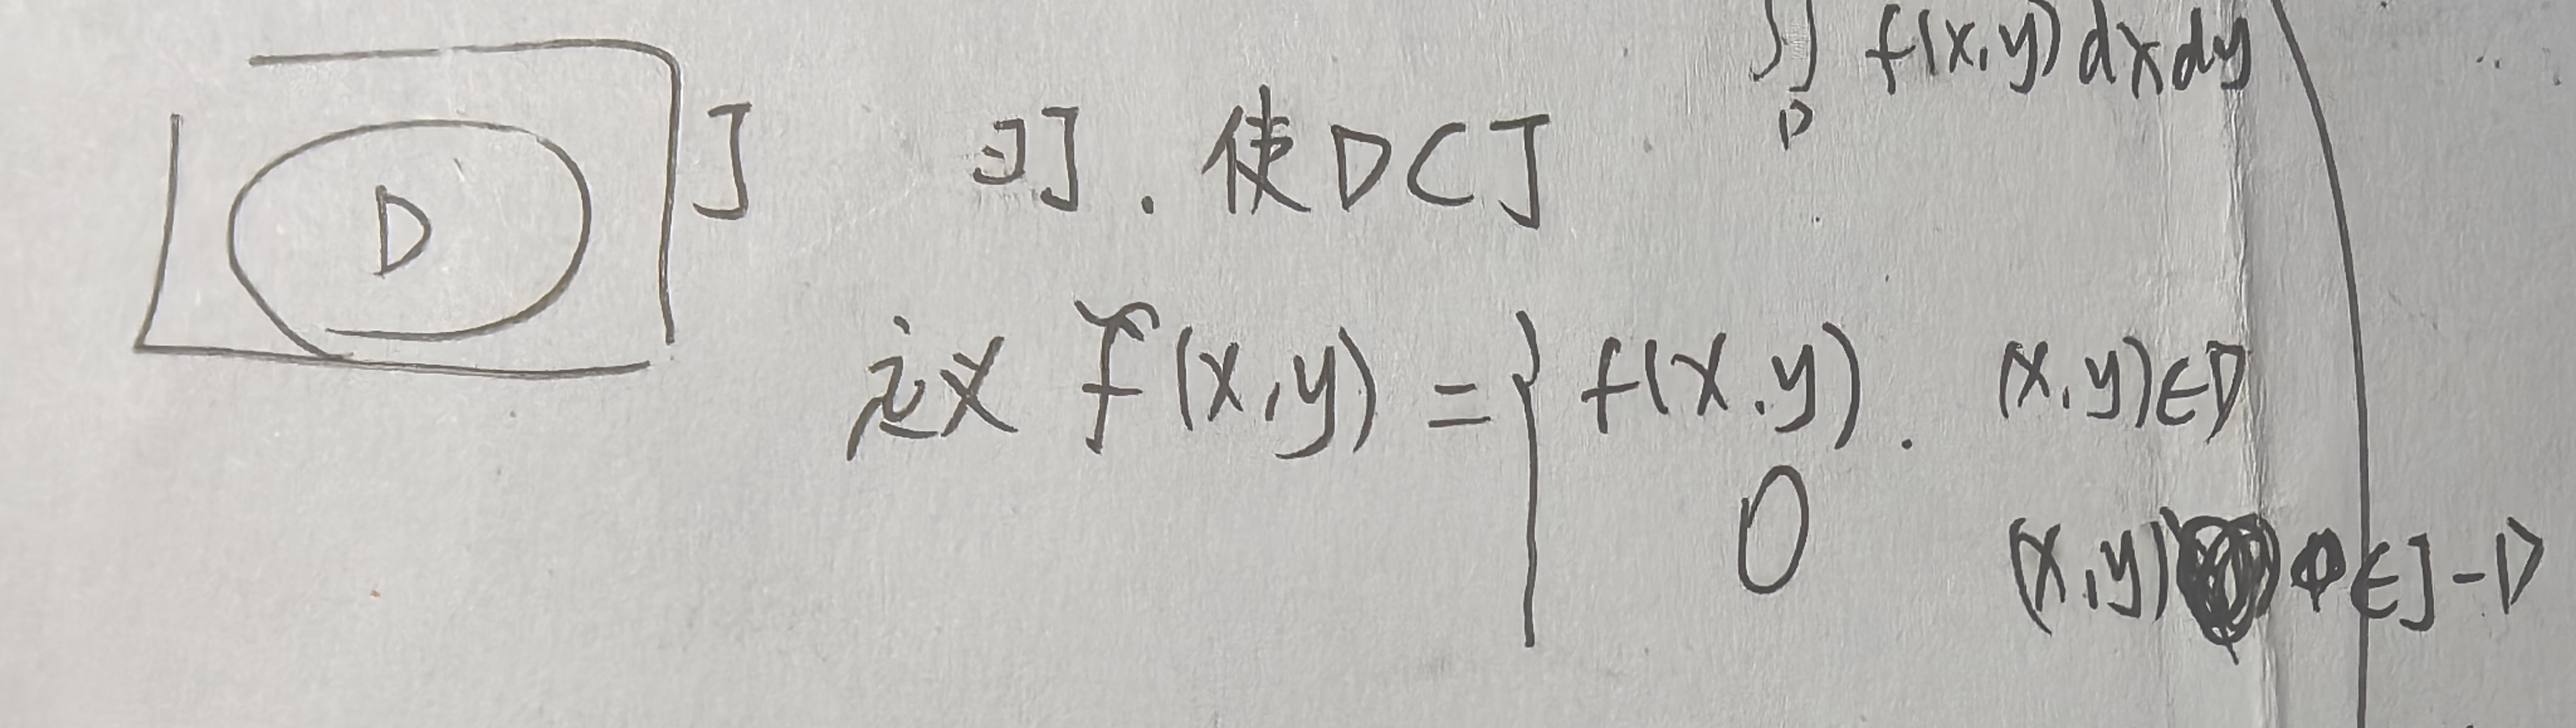 ∬_D f(x,y)dxdy
D J ∃J. 使D⊂J
定义 f̃(x,y) = { f(x,y). (x,y)∈D
0 (x,y) ∈J-D